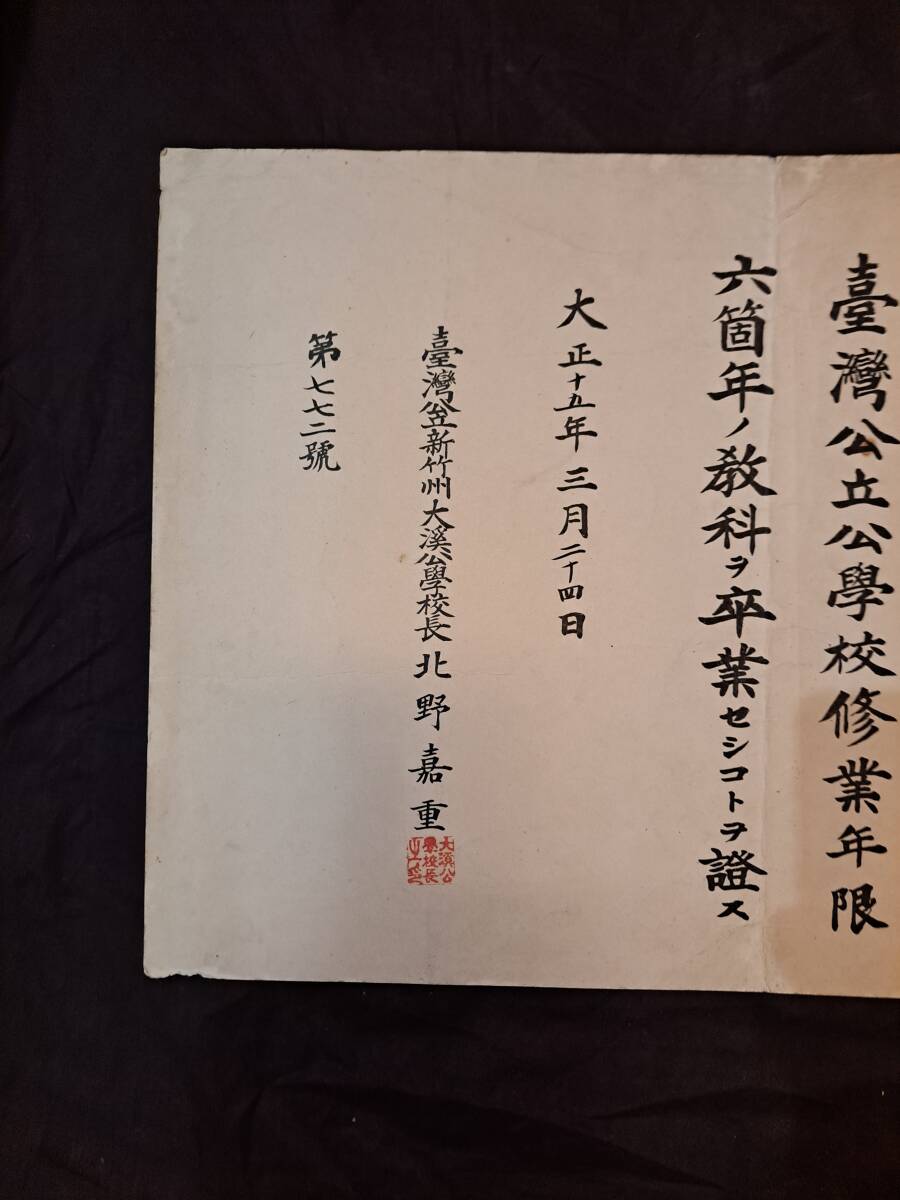 臺灣公立公學校修業年限
六箇年ノ教科ヲ卒業セシコトヲ證ス
大正十五年三月二十四日
臺灣公立新竹州大溪公學校長北野嘉重
大溪公
學校長
之印
第七七二號